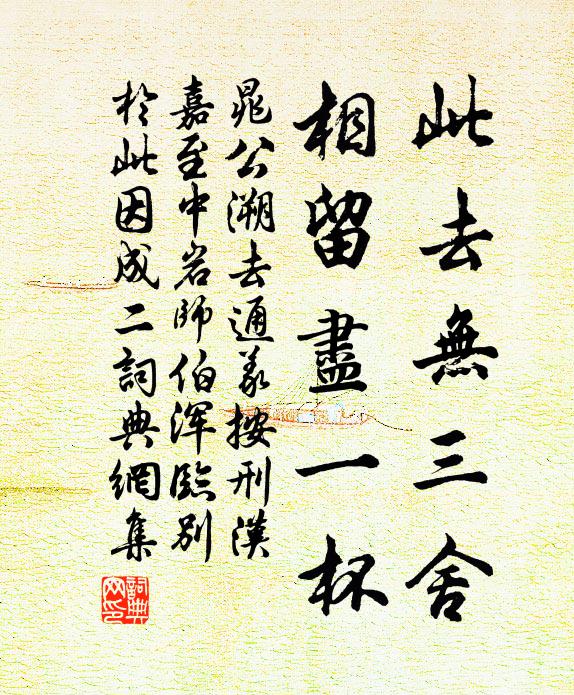 此去無三舍
相留盡一杯
晁公溯去通義按刑漢
嘉至中岩師伯渾臨別
於此因成二詞典網集
詞典
网印